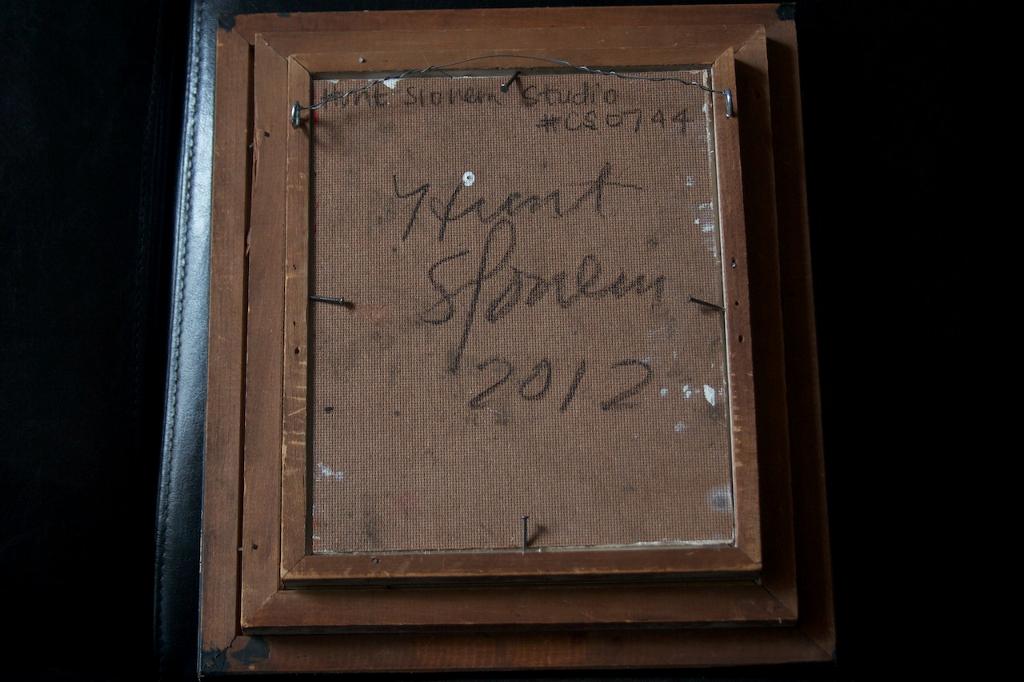 Hunt Slonem Studio
#CS0744
Hunt
Slonem
2012